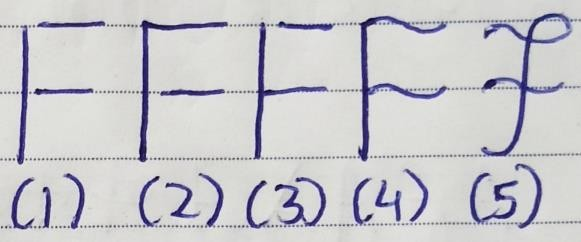 F F F F F
(1) (2) (3) (4) (5)